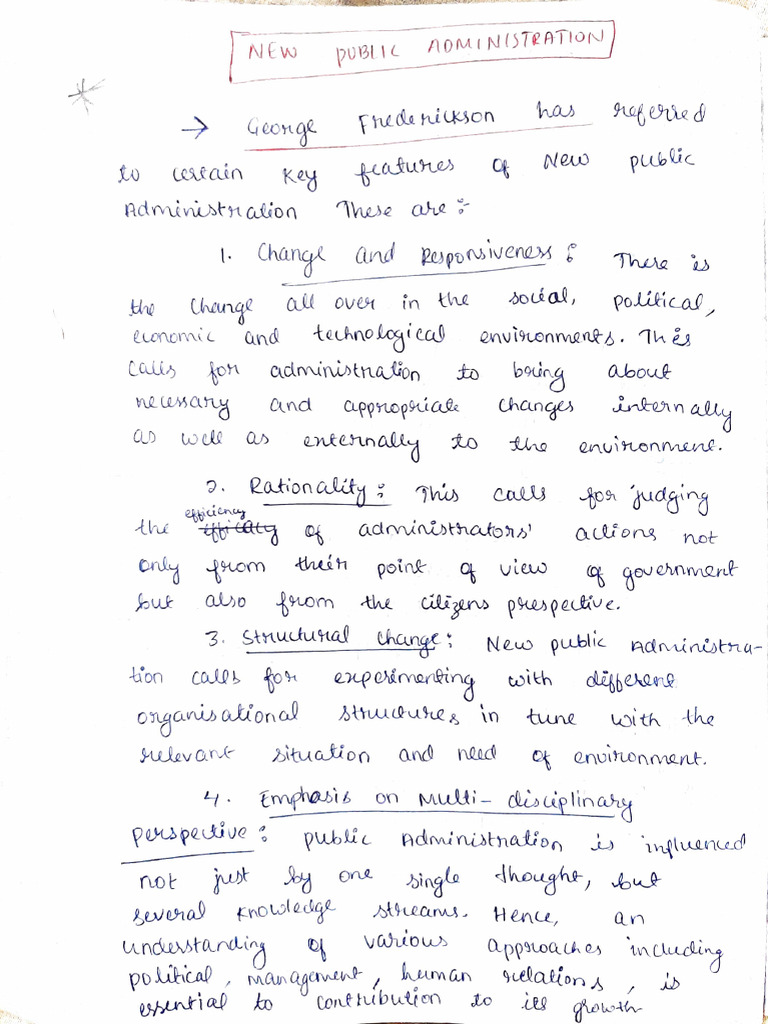 NEW PUBLIC ADMINISTRATION
→ George Frederickson has referred
to certain key features of New public
Administration These are :-
1. Change and Responsiveness : There is
the change all over in the social, political,
economic and technological environments. This
calls for administration to bring about
necessary and appropriate changes internally
as well as externally to the environment.
2. Rationality : This calls for judging
the efficiency of administrators' actions not
only from their point of view of government
but also from the citizens prespective.
3. Structural Change : New public Administra-
tion calls for experimenting with different
organisational structures in tune with the
relevant situation and need of environment.
4. Emphasis on Multi-disciplinary
perspective : public Administration is influenced
not just by one single thought, but
several knowledge streams. Hence, an
understanding of various approaches including
political, management, human relations, is
essential to contribution to its growth